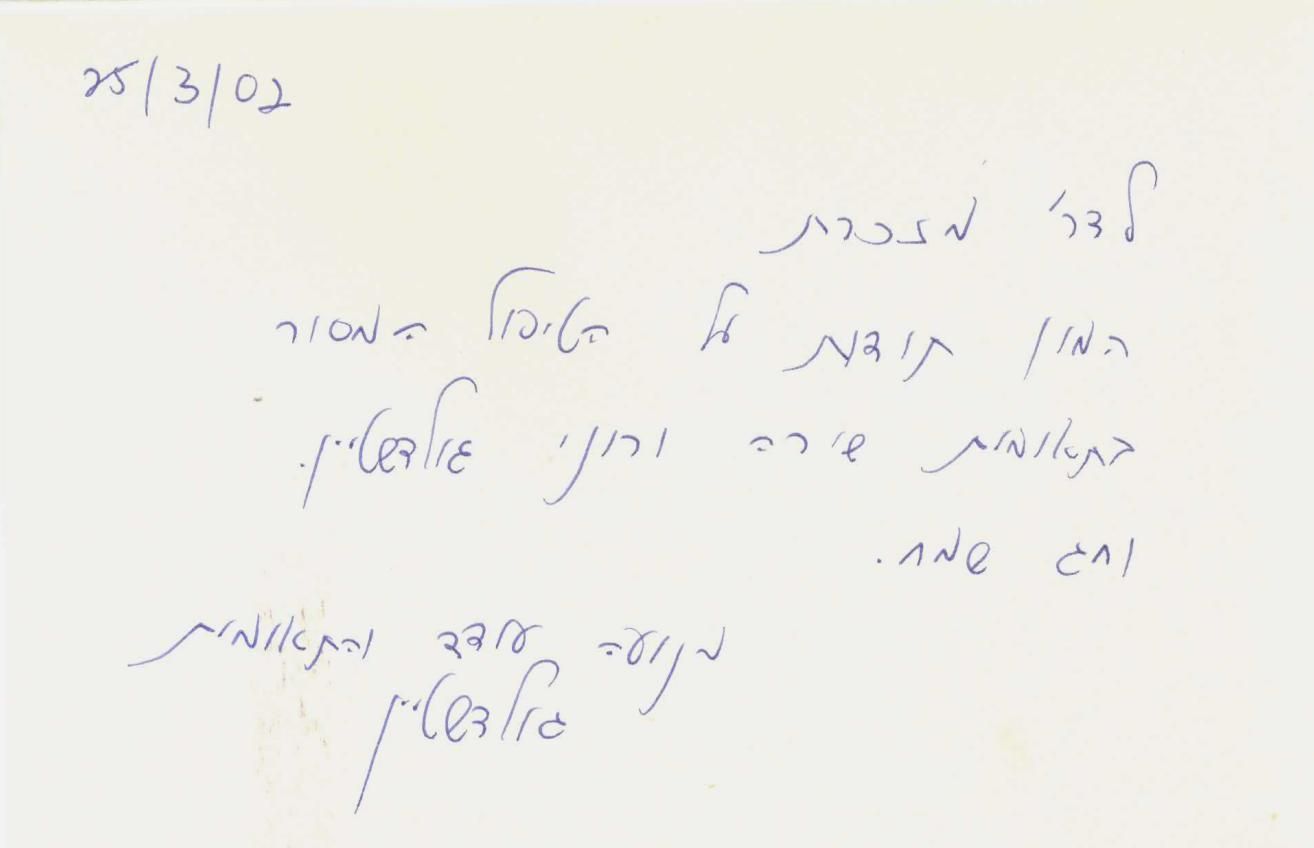 25/3/02
לדר' מזכרת
המון תודות על הטיפול המסור
בתאומות שירה ורוני גולדשטיין.
וחג שמח.
מנועה עודד והתאומות
גולדשטיין